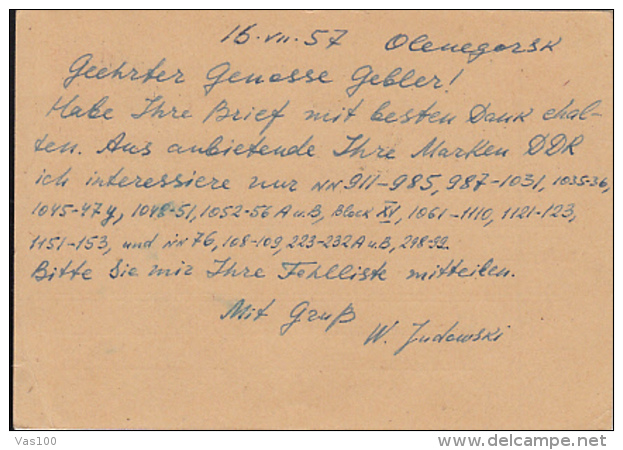 16.VII.57 Olenegorsk
Geehrter Genosse Gebler!
Habe Ihre Brief mit besten Dank ehal-
ten. Aus anbietende Ihre Marken DDR
ich interessiere nur NN 911-985, 987-1031, 1035-36,
1045-47y, 1048-51, 1052-56 A u. B, Block XV, 1061-1110, 1121-123,
1151-153, und NN 76, 108-109, 223-232 A u. B, 298-99.
Bitte Sie mir Ihre Fehlliste mitteilen.
Mit Gruß
W. Judowski
Vas100
delcampe.net